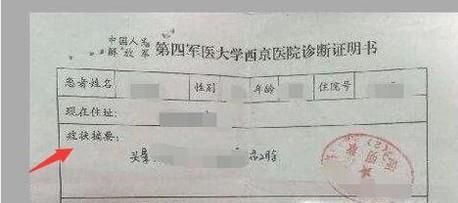 中国人民
解放军 第四军医大学西京医院诊断证明书
患者姓名 性别 年龄 住院号
现在住址:
症状摘要:
头晕